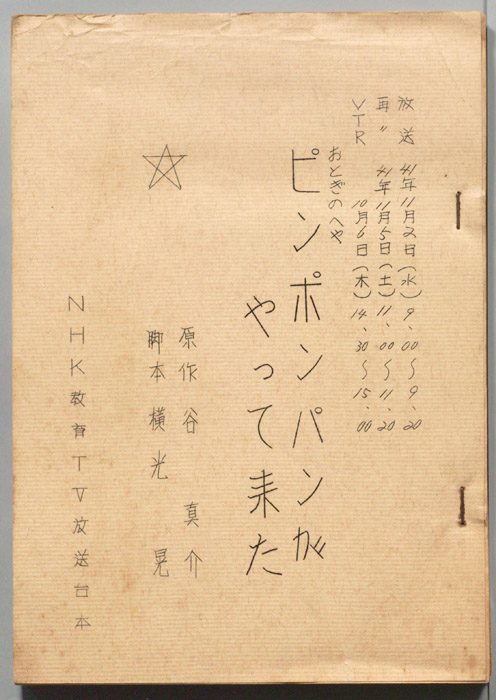 放送 41年11月2日(水) 9.00〜9.20
再〃 41年11月5日(土) 11.00〜11.20
VTR 10月6日(木) 14.30〜15.00
おとぎのへや
ピンポンパンが
やって来た
原作 谷 真介
脚本 横光 晃
NHK教育TV放送台本